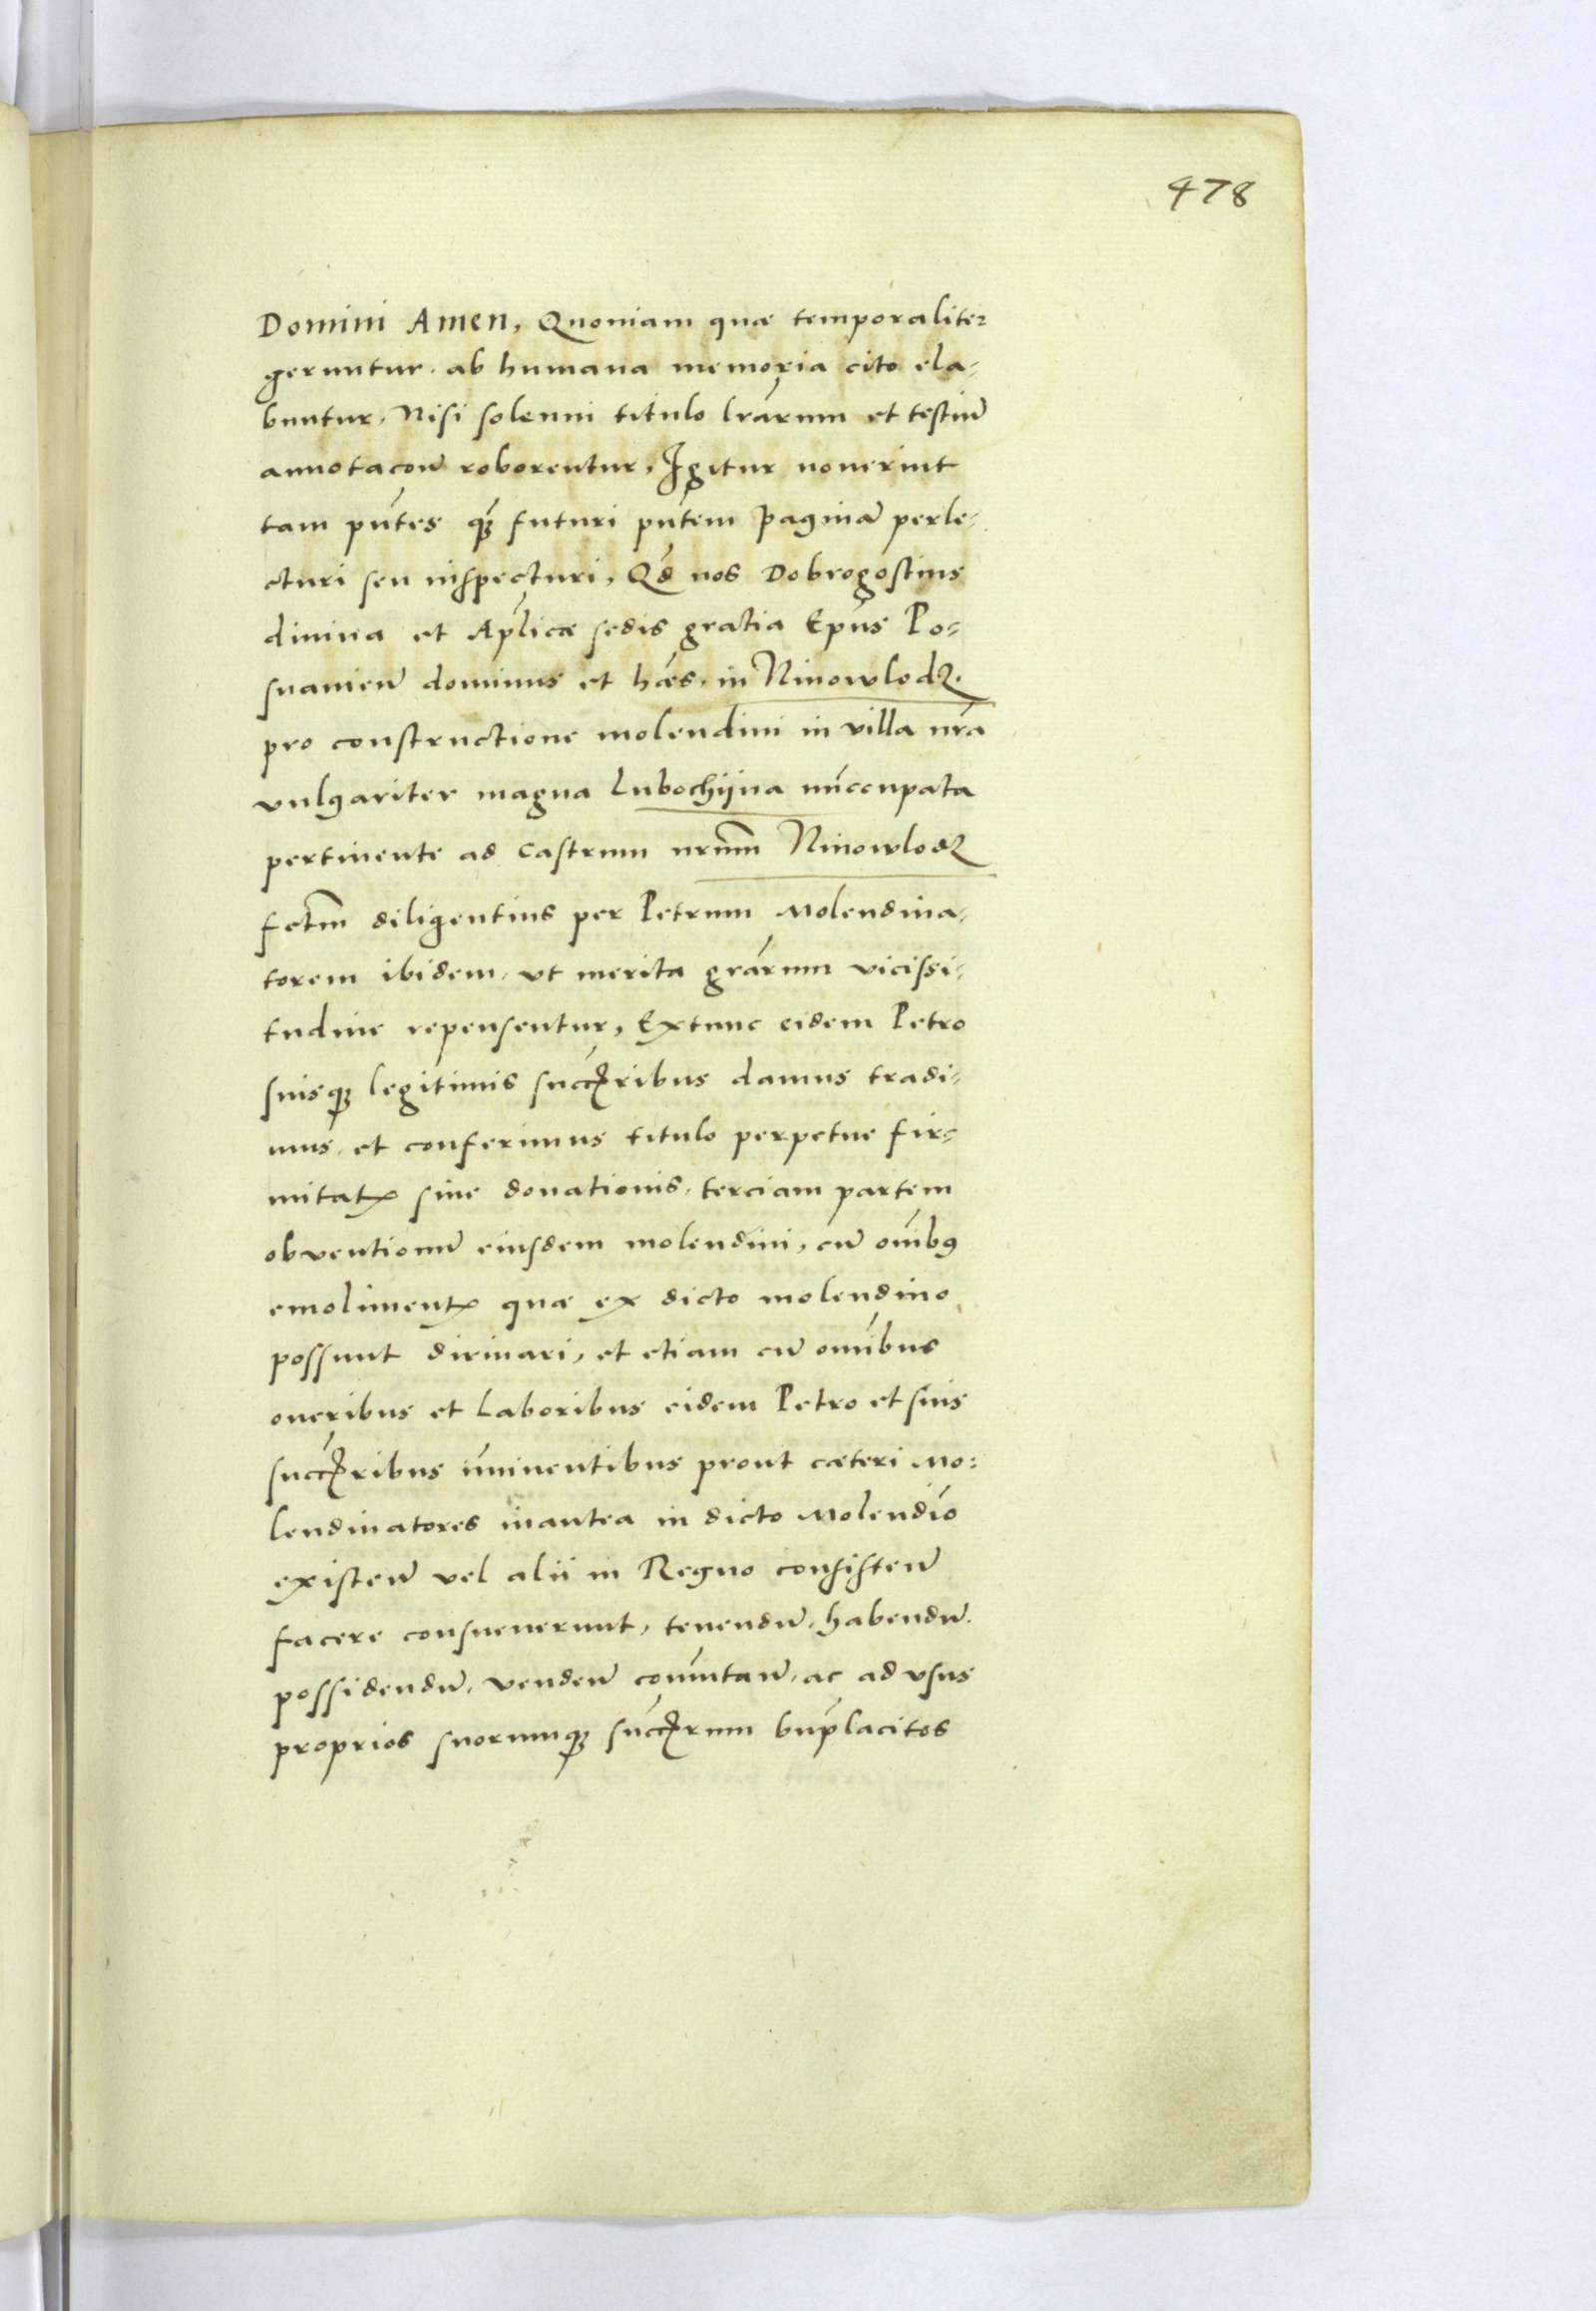 478
Domini Amen, Quoniam quæ temporaliter
geruntur. ab humana memoria cito ela-
buntur, Nisi solenni titulo lr̃arum et testiũ
annotacoñ roborentur, Igitur noverint
tam pñtes q̃ȝ futuri pñtem paginã perle-
cturi seu inspecturi, Qđ nos Dobrogostius
divina et Aplicæ sedis gratia Epũs Po-
snanieñ dominus et hæs. in Ninowlodz.
pro constructione molendini in villa nr̃a
vulgariter magna Lubochijna nũccupata
pertinente ad castrum nrũm Ninowlodz
fctm̃ diligentius per Petrum Molendina-
torem ibidem, ut merita gr̃arum vicissi-
tudine repensentur, Extunc eidem Petro
suisqȝ legitimis succ̃ꝛibus damus tradi-
mus, et conferimus titulo perpetue fir-
mitatꝭ sive donationis, terciam partem
obventionũ eiusdem molendini, cũ oĩbꝰ
emolimentꝭ quæ ex dicto molendino
possunt dirivari, et etiam cũ omĩbus
oneribus et laboribus eidem Petro et suis
succ̃ꝛibus im̃inentibus prout cæteri Mo-
lendinatores inantea in dicto Molendĩo
existeñ vel alii in Regno consisteñ
facere consueverunt, tenendũ, habendũ.
possidendũ, vendeñ com̃utañ, ac ad usus
proprios suorumqȝ succ̃ꝛum bñplacitos